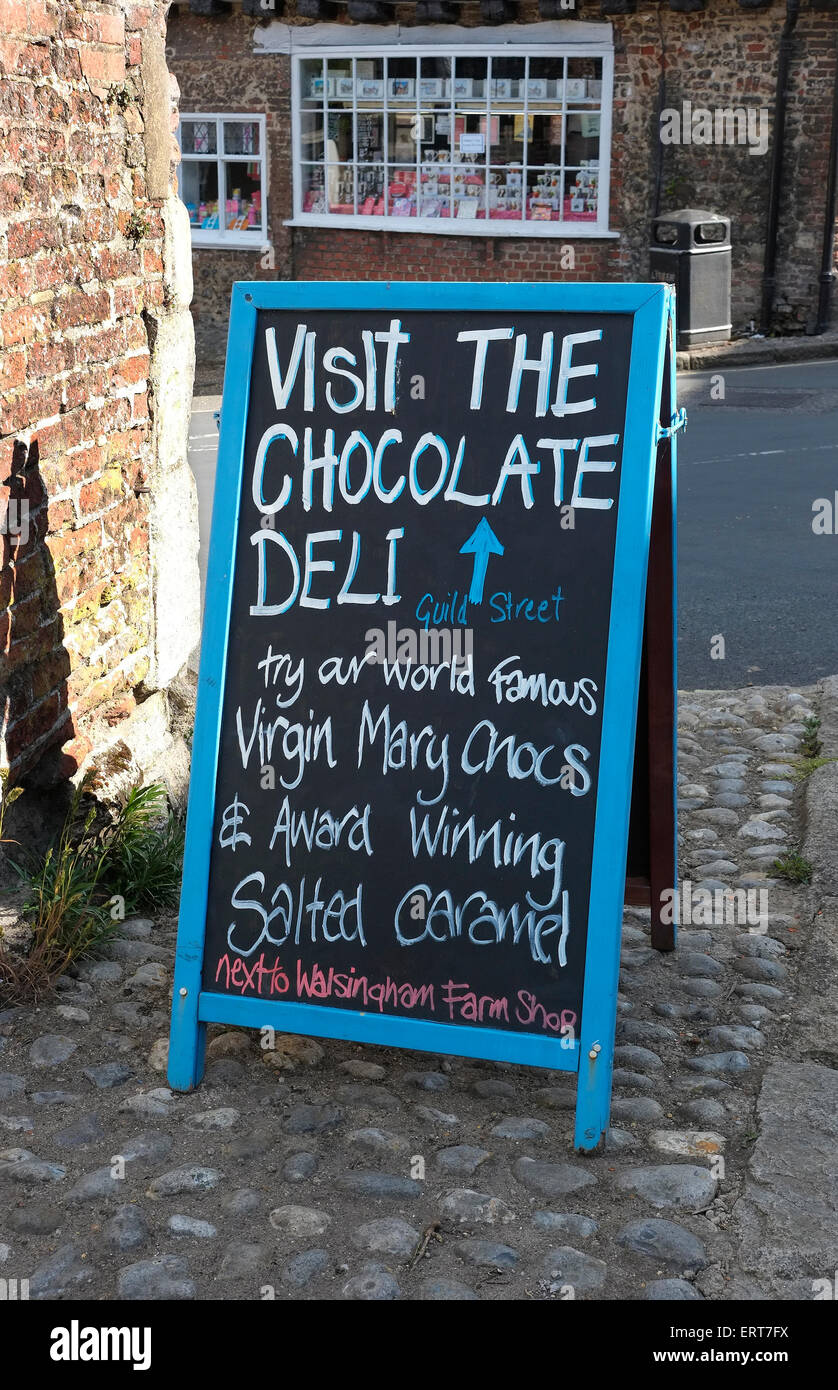 VISIT THE
CHOCOLATE
DELI
Guild Street
try our world famous
Virgin Mary Chocs
& Award Winning
Salted Caramel
next to Walsingham Farm Shop
alamy
alamy
Image ID: ERT7FX
www.alamy.com